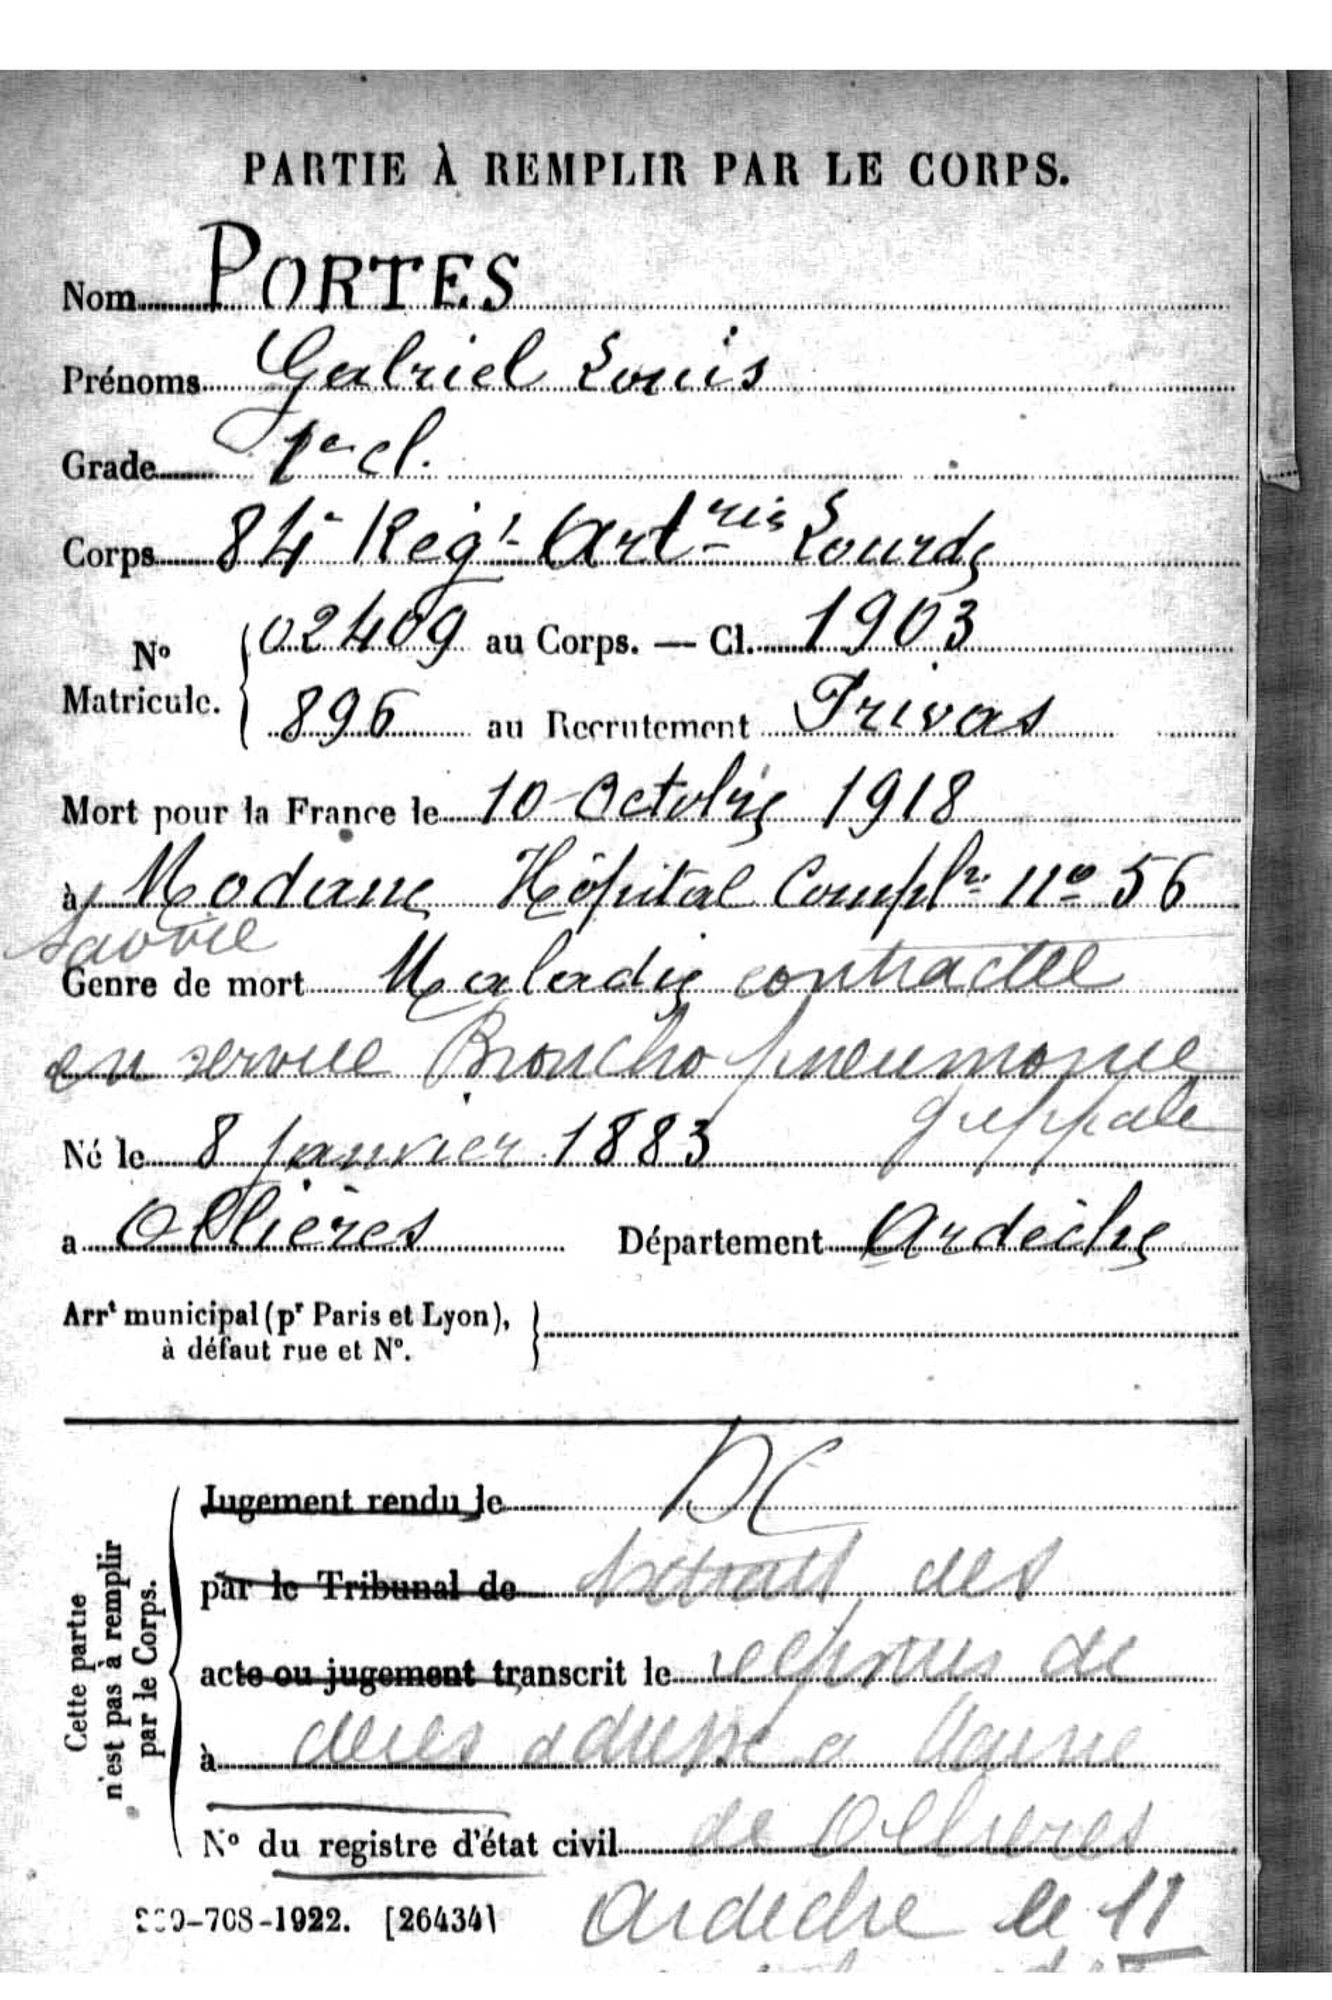 PARTIE À REMPLIR PAR LE CORPS.
Nom PORTES
Prénoms Gabriel Louis
Grade 1e cl.
Corps 84e Regt Artrie Lourde
No Matricule. 02409 au Corps. — Cl. 1903
896 au Recrutement Privas
Mort pour la France le 10 Octobre 1918
à Modane Hôpital Complre no 56
Savoie
Genre de mort Maladie contractée
en service Broncho pneumonie
grippale
Né le 8 Janvier 1883
a Ollières Département Ardèche
Arrt municipal (pr Paris et Lyon),
à défaut rue et No.
Cette partie
n'est pas à remplir
par le Corps.
Jugement rendu le DC
par le Tribunal de des
acte ou jugement transcrit le de
à deces adressé a Mairie
No du registre d'état civil de Ollieres
-708-1922. [26434] Ardeche le 11